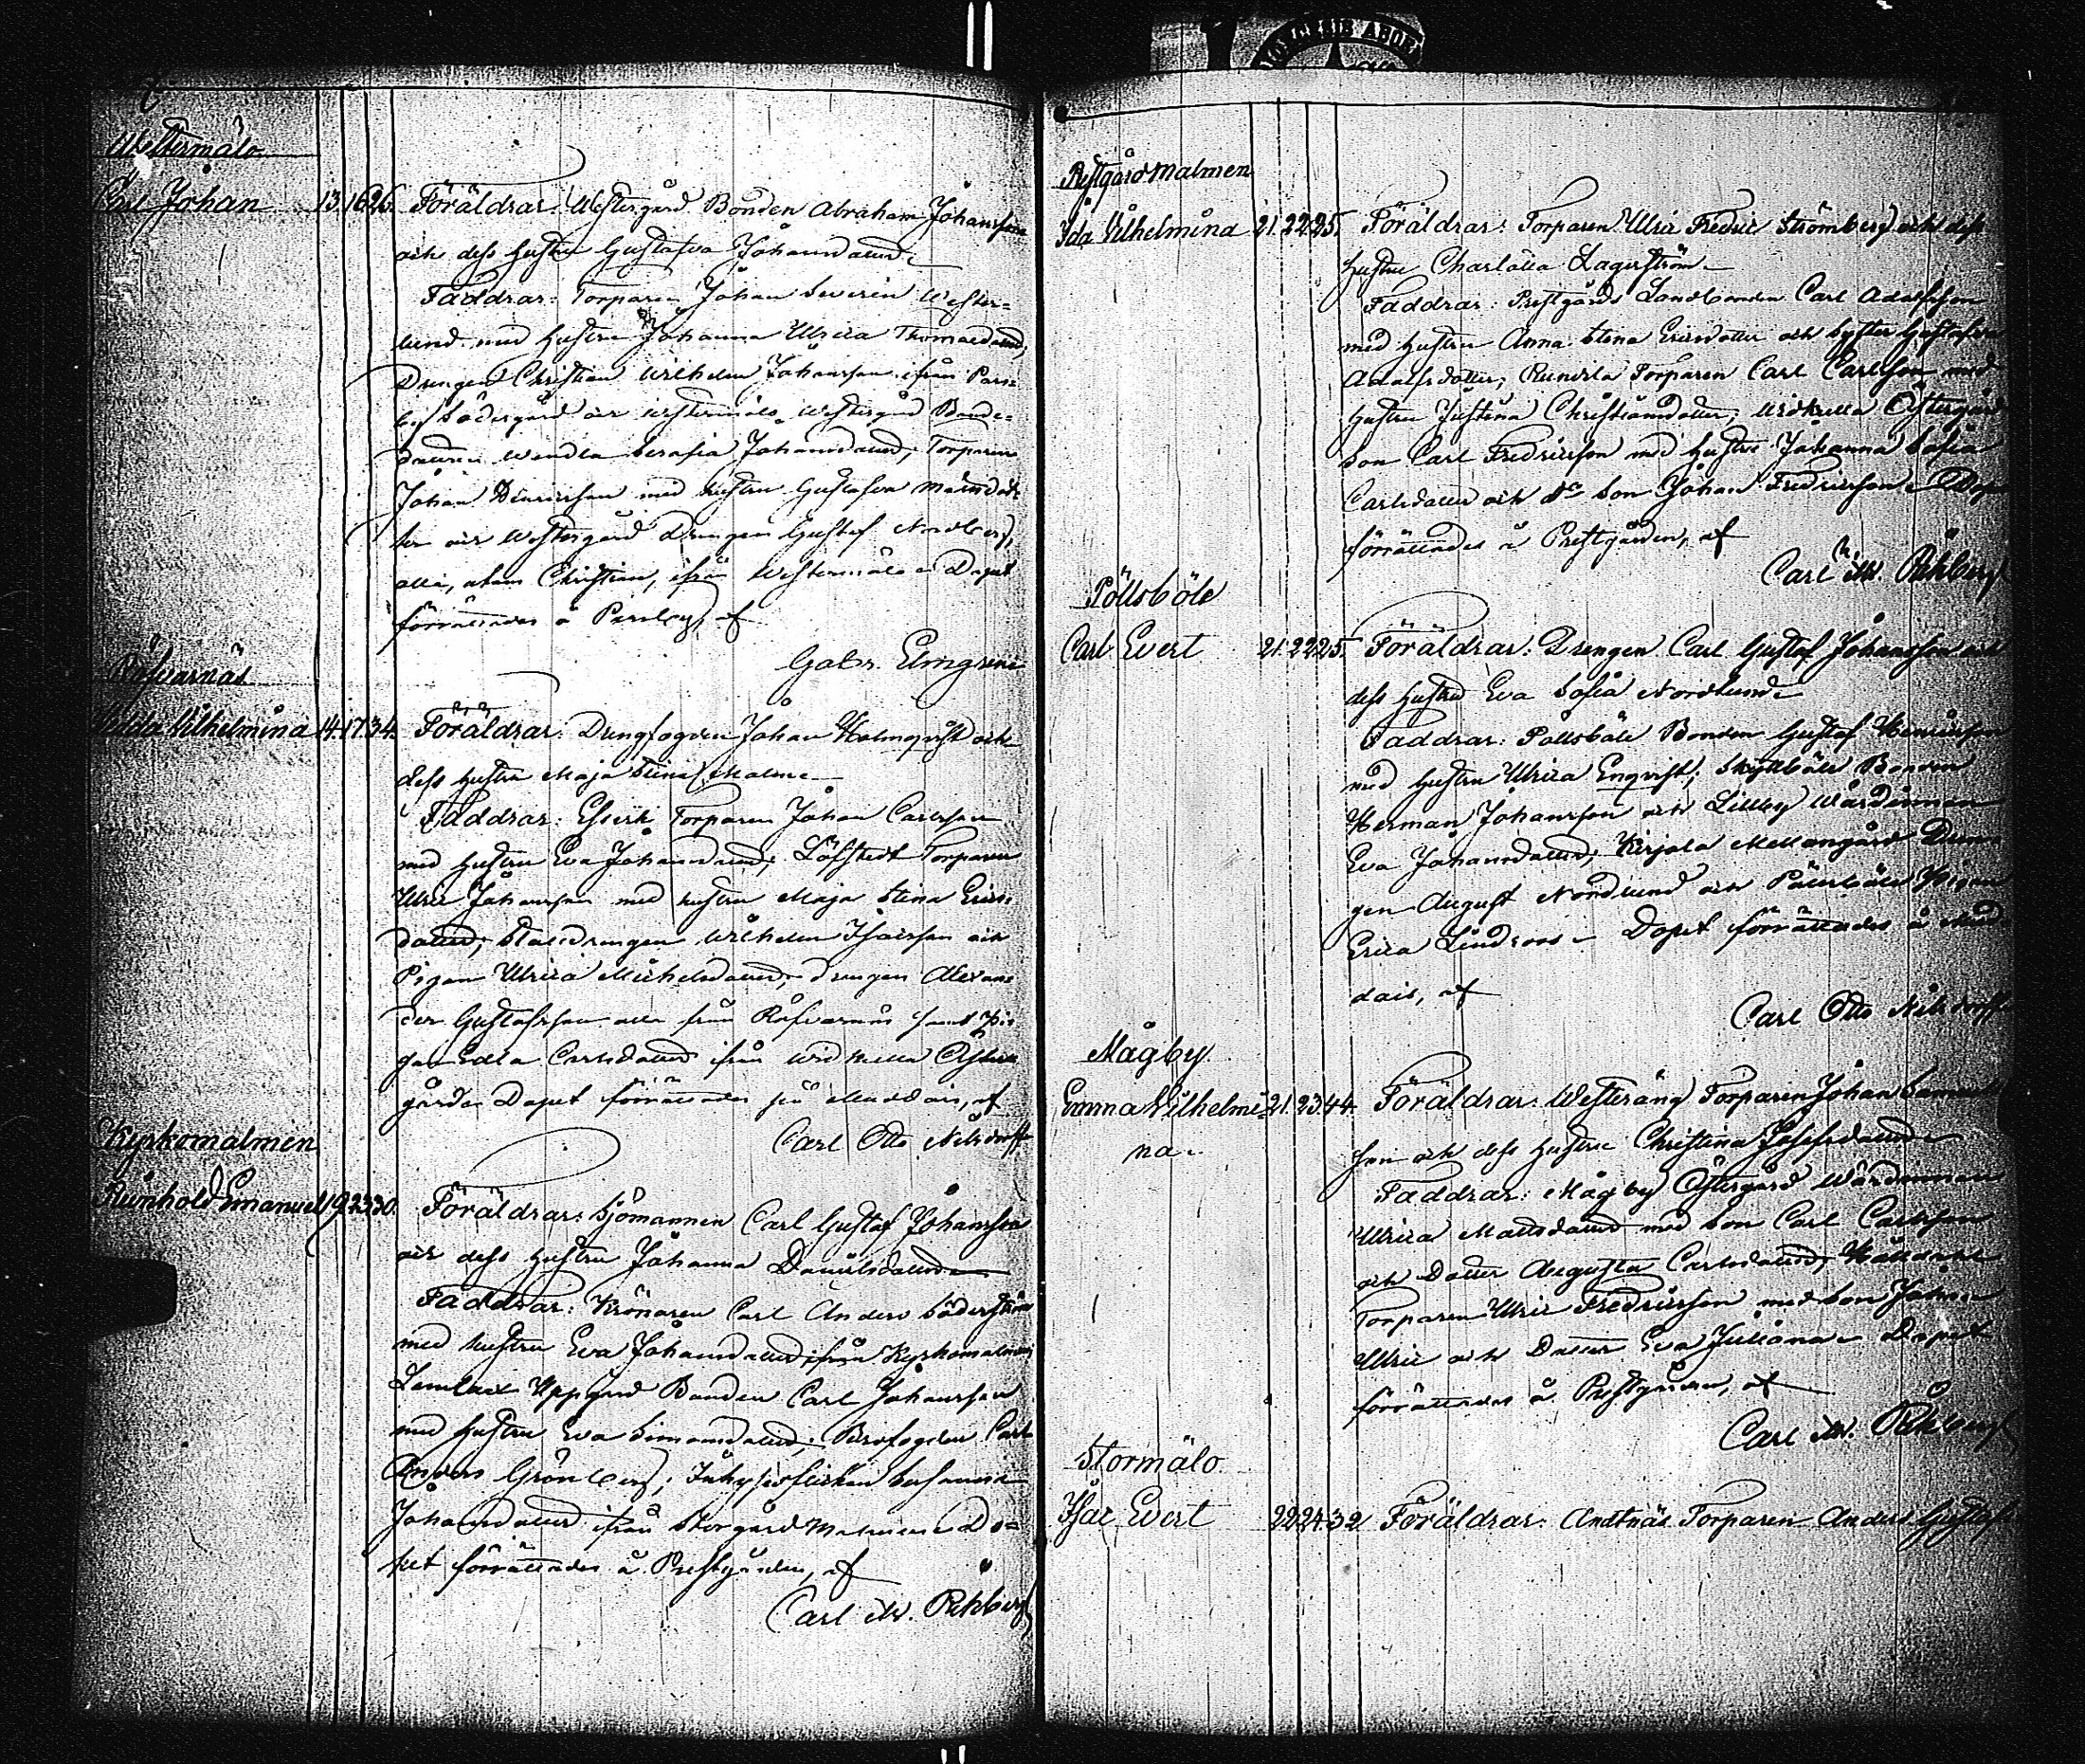 Westermälo
Carl Johan 13. 16. 26. Föräldrar: Westergård Bonden Abraham Johansson
och dess hustru Gustafva Johansdotter
Faddrar: Torparen Johan Severin Wester=
lund med hustru Johanna Ulrica Thomasdotter,
Drengen Christian Wilhelm Johansson ifrån Pars=
by Södergård och Westermälo Westergård Bonde=
dottren Wendla Serafia Johansdotter, Torparen
Johan Henricsson med hustru Gustafva Mattsdot=
ter och Westergård Drengen Gustaf Nordberg,
alla, utom Christian, ifrån Westermälo. Dopet
förrättades å Parsby, af
Gabr. Elmgren
Räfvarnäs
Hedda Wilhelmina 14. 17. 34. Föräldrar: Drengfogden Johan Holmqvist och
dess hustru Maja Stina Malm
Faddrar: Torparen Johan Carlsson
med hustru Eva Johansdotter, Löfstedt Torparen
Ulric Johansson med hustru Maja Stina Erics=
dotter, Stalldrengen Wilhelm Isacsson och
Pigan Ulrica Michelsdotter, Drengen Alexan=
der Gustafsson alla från Räfvarnäs samt Pi=
gan Edla Carlsdotter ifrån Widkulla Öster=
gård. Dopet förrättades på Muddais, af
Carl Otto Nilsdorff
Kyrkomalmen
Reinhold Emanuel 19. 23. 30. Föräldrar: Sjömannen Carl Gustaf Johansson
och dess hustru Johanna Danielsdotter
Faddrar: Krönaren Carl Anders Söderström
med hustru Eva Johansdotter ifrån Kyrkomalmen
Lemlax Uppgård Bonden Carl Johansson
med hustru Eva Simonsdotter, Carl
Anders Grönberg, Inhyseflickan Susanna
Johansdotter ifrån Storgård Malmen. Do=
pet förrättades å Prestgården, af
Carl M. Rehberg
Prestgård Malmen
Ida Wilhelmina 21. 22. 25. Föräldrar: Torparen Ulric Fredric Strömberg och dess
hustru Charlotta Lagerström
Faddrar: Prestgårds Landbonden Carl Adolfsson
med hustru Anna Stena Ericsdotter och syster Gustafva
Adolfsdotter, Torparen Carl Carlsson med
hustru Justina Christiansdotter, Widkulla Östergård
Son Carl Fredricsson med hustru Johanna Sofia
Carlsdotter och do Son Johan Fredricsson. Dopet
förrättades å Prestgården, af
Carl M. Rehberg
Pöllsböle
Carl Evert 21. 22. 25. Föräldrar: Drengen Carl Gustaf Johansson och
dess hustru Eva Sofia Nordlund
Faddrar: Pöllsböle Bonden Gustaf Henricsson
med hustru Ulrica Engvist, Skyttböle Bonden
Herman Johansson och Lillby Wärdinnan
Eva Johansdotter, Kirjala Mellangård Dren=
gen August Nordlund och Pöllsböle Pigan
Erica Lindroos. Dopet förrättades å Mud=
dais, af
Carl Otto Nilsdorff
Mågby
Emma Wilhelmi= 21. 23. 44. Föräldrar: Westeräng Torparen Johan Samuels
na. son och dess hustru Christina Josefsdotter
Faddrar: Mågby Östergård Wärdinnan
Ulrica Mattsdotter med Son Carl Carlsson
och Dotter Augusta Carlsdotter,
Torparen Ulric Fredricsson med Son Johan
Ulric och Dotter Eva Juliana. Dopet
förrättades å Prestgården, af
Carl M. Rehberg
Stormälo
Isac Evert 22. 24. 32 Föräldrar: Anäs Torparen Anders Gustafs